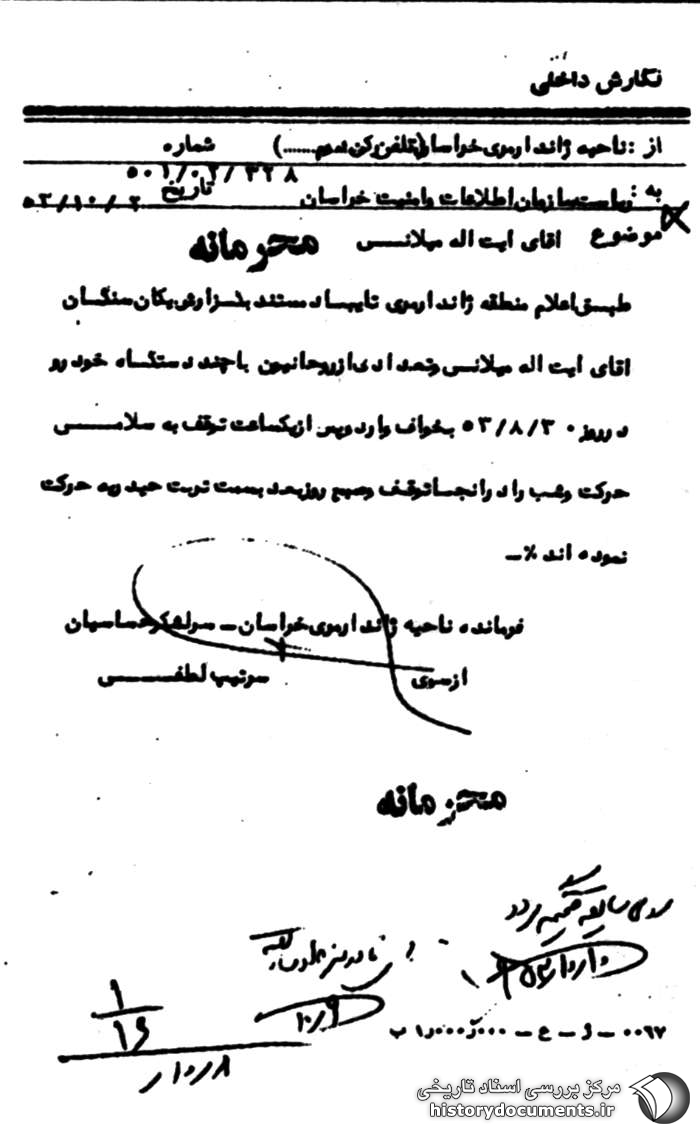 نگارش داخلی
از : ناحیه ژاندارمری خراسان (تلفن رکن سوم ......) شماره
۵۰۱/۰۲/۴۲۸
به : ریاست سازمان اطلاعات و امنیت خراسان تاریخ ۵۳/۱۰/۲
موضوع اقای ایت اله میلانسی محرمانه
طبق اعلام منطقه ژاندارمری تایباد مستند بگزارش یگان سنگان
اقای ایت اله میلانسی و تعدادی از روحانیون با چند دستگاه خود رو
در روز ۵۳/۸/۳۰ بخواف وارد و پس از یکساعت توقف به سلامــــی
حرکت و شب را در انجا توقف و صبح روز بعد بسمت تربت حیدریه حرکت
نموده اند ٪ــ
فرمانده ناحیه ژاندارمری خراسان ــ سرلشکر عباسیان
از سوی سرتیپ لطفــــی
محرمانه
۱
۱۶
۰۰۹۷ ــ ل ــ ع ــ ۰۰۰ر۰۰۰ر۱ ب
مرکز بررسی اسناد تاریخی
historydocuments.ir